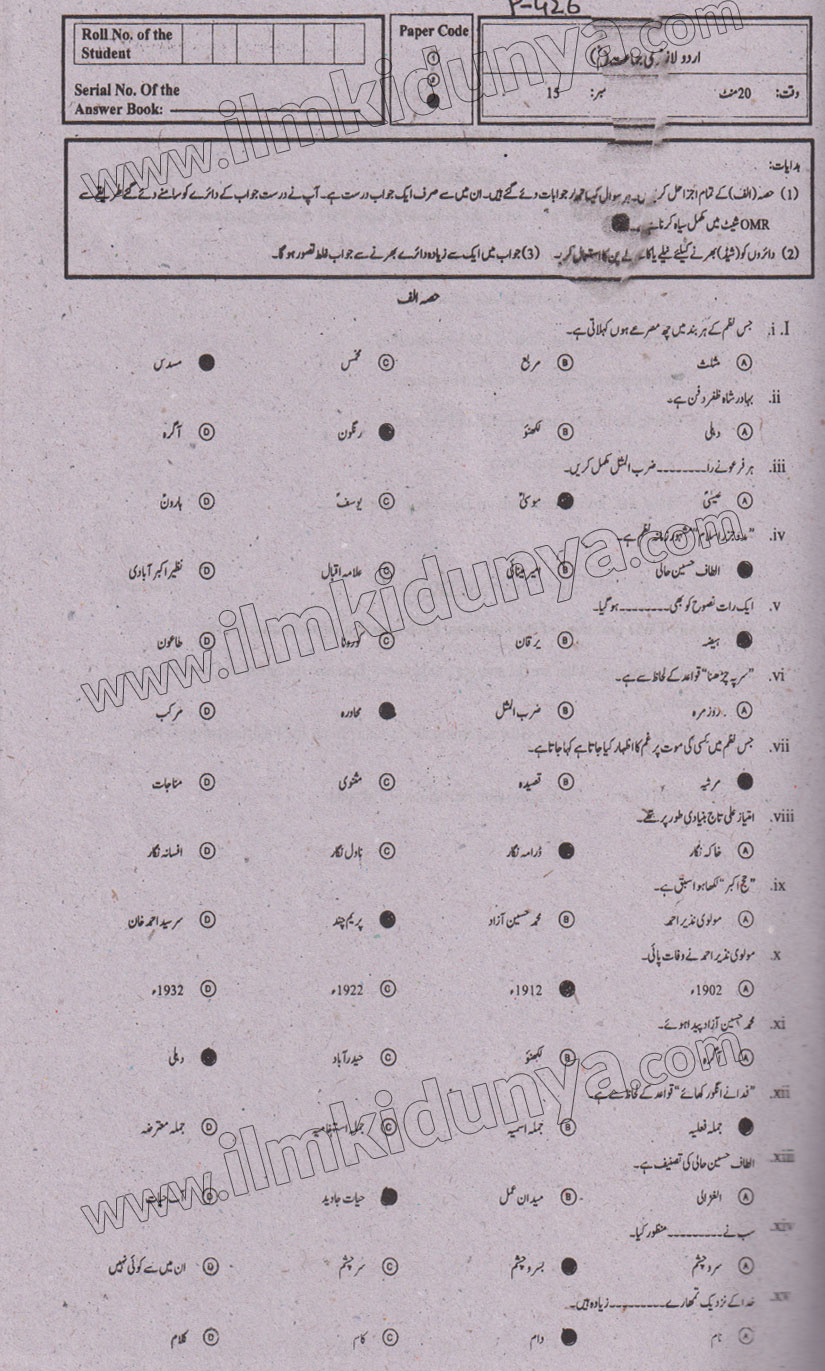 P-426
Roll No. of the Student
Serial No. Of the Answer Book:
Paper Code
1
2
اردو لازمی جماعت
وقت: 20 منٹ نمبر: 15
ہدایات:
(1) حصہ (الف) کے تمام اجزا حل کریں۔ ہر سوال کیساتھ جوابات دئے گئے ہیں۔ ان میں سے صرف ایک جواب درست ہے۔ آپ نے درست جواب کے دائرے کو سامنے دئے گئے طریقے سے
OMR شیٹ میں مکمل سیاہ کرنا ہے۔
(2) دائروں کو (شیڈ) بھرنے کیلئے نیلے یا کالے پن کا استعمال کریں۔ (3) جواب میں ایک سے زیادہ دائرے بھرنے سے جواب غلط تصور ہوگا۔
حصہ الف
I. i. جس نظم کے ہر بند میں چھ مصرعے ہوں کہلاتی ہے۔
A مثلث B مربع C مخمس مسدس
ii. بہادر شاہ ظفر دفن ہے۔
A دہلی B لکھنؤ رنگون D آگرہ
iii. ہر فرعونے را ــــــــــ ضرب المثل مکمل کریں۔
A عیسیٰؑ موسیٰؑ C یوسفؑ D ہارونؑ
iv. "مدوجزر اسلام" مشہور زمانہ نظم ہے۔
الطاف حسین حالی B امیر مینائی C علامہ اقبال D نظیر اکبر آبادی
v. ایک رات نصوح کو بھی ــــــــــ ہو گیا۔
ہیضہ B یرقان C کورونا D طاعون
vi. "سر پہ چڑھنا" قواعد کے لحاظ سے ہے۔
A روزمرہ B ضرب المثل محاورہ D مرکب
vii. جس نظم میں کسی کی موت پر غم کا اظہار کیا جاتا ہے کہا جاتا ہے۔
مرثیہ B قصیدہ C مثنوی D مناجات
viii. امتیاز علی تاج بنیادی طور پر تھے۔
A خاکہ نگار ڈرامہ نگار C ناول نگار D افسانہ نگار
ix. "حج اکبر" لکھا ہوا سبق ہے۔
A مولوی نذیر احمد B محمد حسین آزاد پریم چند D سرسید احمد خان
x. مولوی نذیر احمد نے وفات پائی۔
A 1902ء 1912ء C 1922ء D 1932ء
xi. محمد حسین آزاد پیدا ہوئے۔
A آگرہ B لکھنؤ C حیدرآباد دہلی
xii. "فدا نے انگور کھائے" قواعد کے لحاظ سے ہے۔
جملہ فعلیہ B جملہ اسمیہ C جملہ استفہامیہ D جملہ معترضہ
xiii. الطاف حسین حالی کی تصنیف ہے۔
A الغزالی B میدان عمل حیات جاوید D آب حیات
xiv. سب نے ــــــــــ منظور کیا۔
A سرو چشم بسر و چشم C سر چشم D ان میں سے کوئی نہیں
xv. خدا کے نزدیک تمھارے ــــــــــ زیادہ ہیں۔
A نام دام C کام D کلام
www.ilmkidunya.com
www.ilmkidunya.com
www.ilmkidunya.com